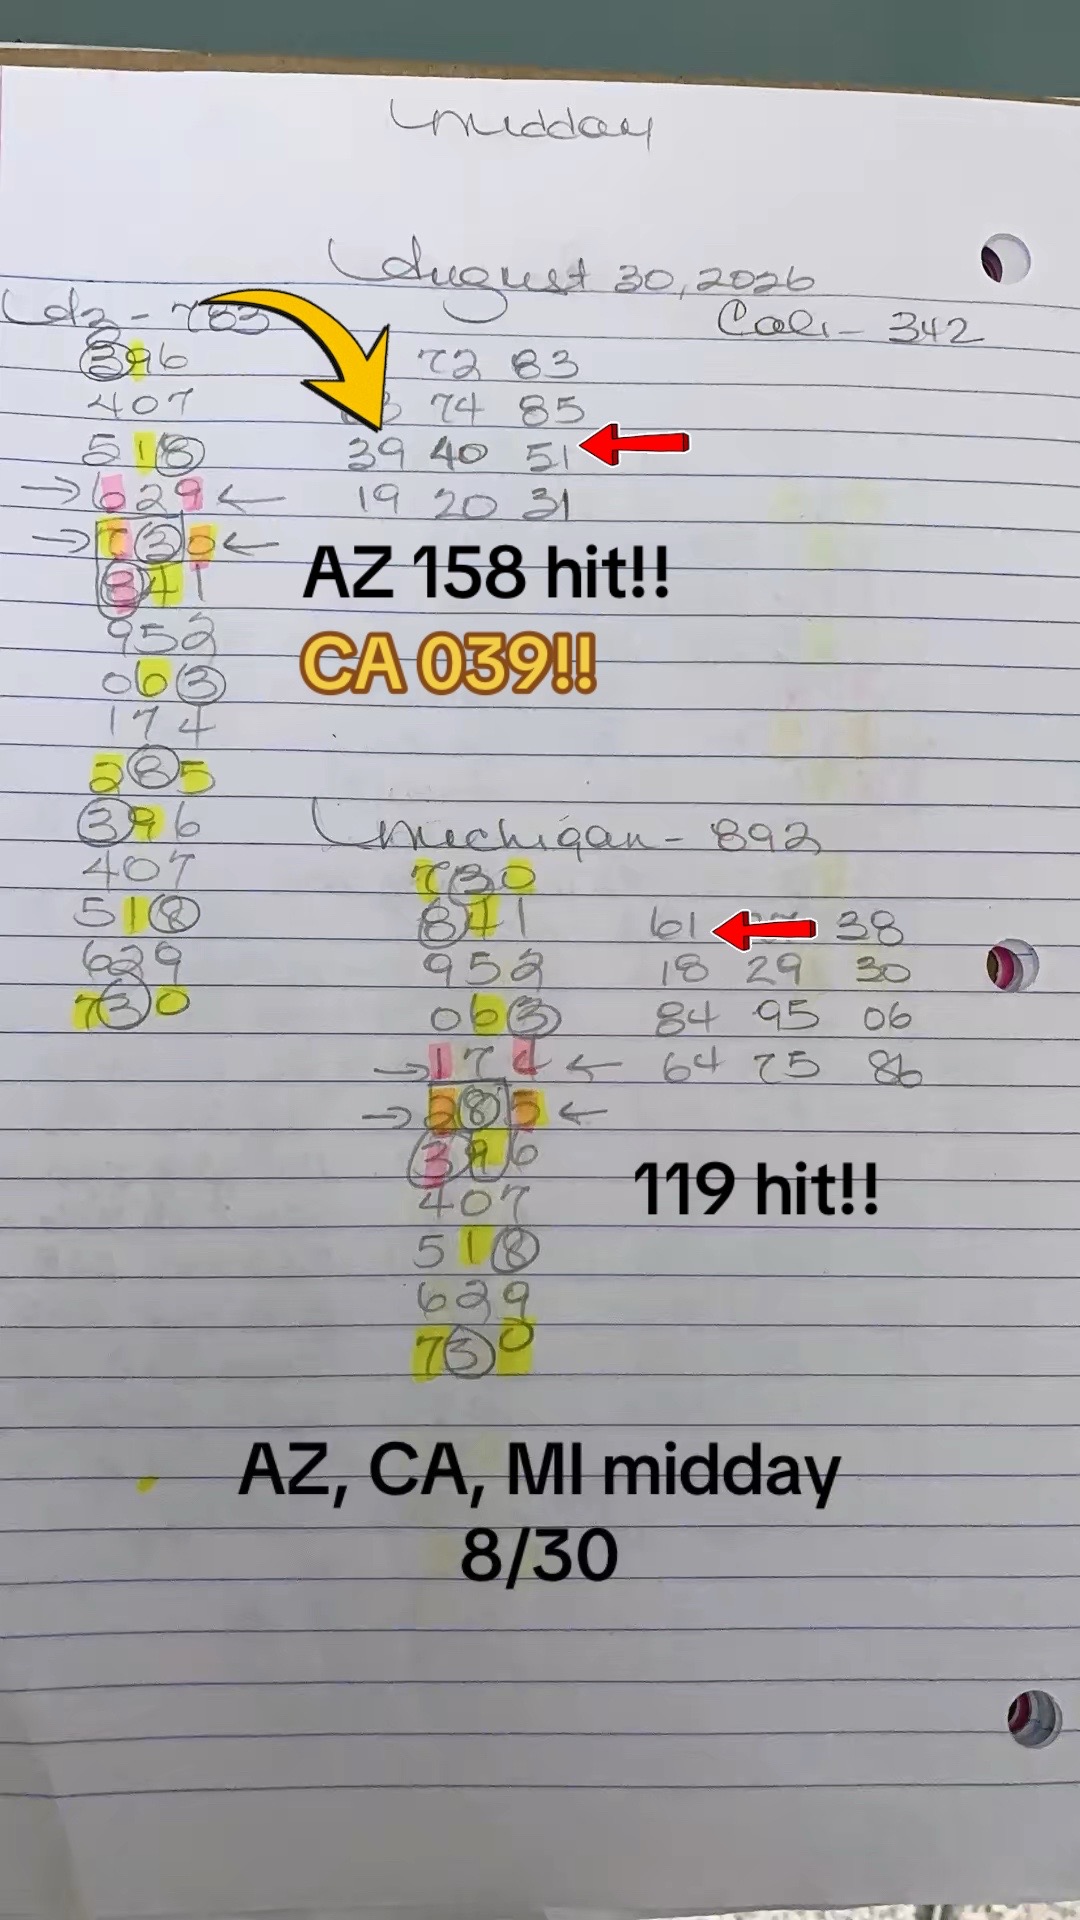 midday
August 30, 2026
Az - 783
Cali - 342
396
72 83
407
74 85
518
39 40 51
629
19 20 31
730
AZ 158 hit!!
841
952
CA 039!!
063
174
285
396
Michigan - 892
407
730
518
841
61 38
629
952
18 29 30
730
063
84 95 06
174
64 75 86
285
396
119 hit!!
407
518
629
730
AZ, CA, MI midday
8/30